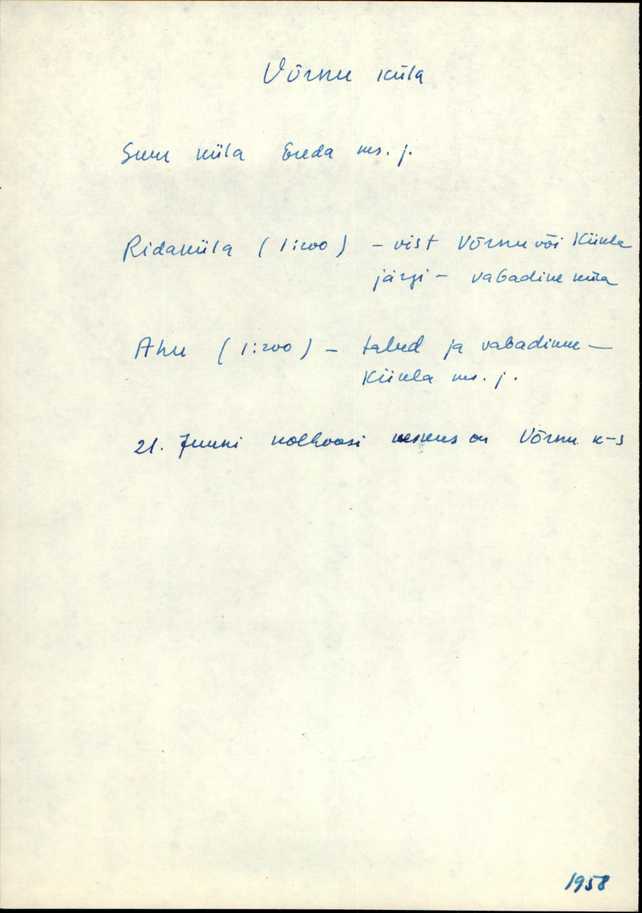 Võrnu küla
Suur küla Ereda ms. j.
Ridaküla (1:200) – vist Võrnu või Kiikla
järgi – vabadike küla
Ahu (1:200) – talud ja vabadikud –
Kiikla ms. j.
21. Juuni kolhoosi keskus on Võrnu k-s
1958